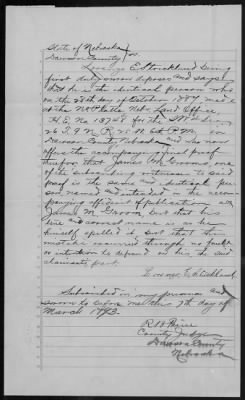 State of Nebraska
Dawson County
E Strickland being
first duly sworn deposes and says
that he is the identical person who
on the 25th day of October 1887 made
at the North Platte Neb. Land Office,
H.E. No. 13728 for the
26 T. 9 N R. 21 W 6th P.M. in
Dawson County Nebraska and who now
offers the accompanying final proof
therefor that James M. Grooms, one
of the subscribing witnesses to said
proof is the same and identical per
son named and intended in the accom
panying affidavit of publication as
James M. Groom but that his
true and correct name is as he
himself spelled it, but that the
mistake occurred through no fault
or intention he depend on his, the said
claimants part.
E. Strickland
Subscribed in my presence and
sworn to before me this 7th day of
March 1893.
County Judge
Dawson County
Nebraska